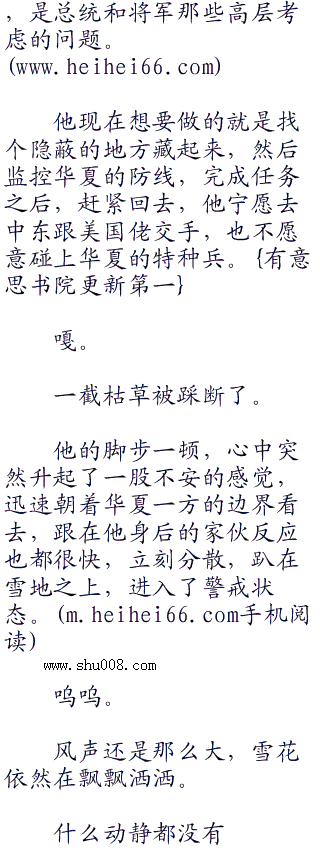 ，是总统和将军那些高层考
虑的问题。
(www.heihei66.com)
他现在想要做的就是找
个隐蔽的地方藏起来，然后
监控华夏的防线，完成任务
之后，赶紧回去，他宁愿去
中东跟美国佬交手，也不愿
意碰上华夏的特种兵。{有意
思书院更新第一}
嘎。
一截枯草被踩断了。
他的脚步一顿，心中突
然升起了一股不安的感觉，
迅速朝着华夏一方的边界看
去，跟在他身后的家伙反应
也都很快，立刻分散，趴在
雪地之上，进入了警戒状
态。(m.heihei66.com手机阅
读)
www.shu008.com
呜呜。
风声还是那么大，雪花
依然在飘飘洒洒。
什么动静都没有